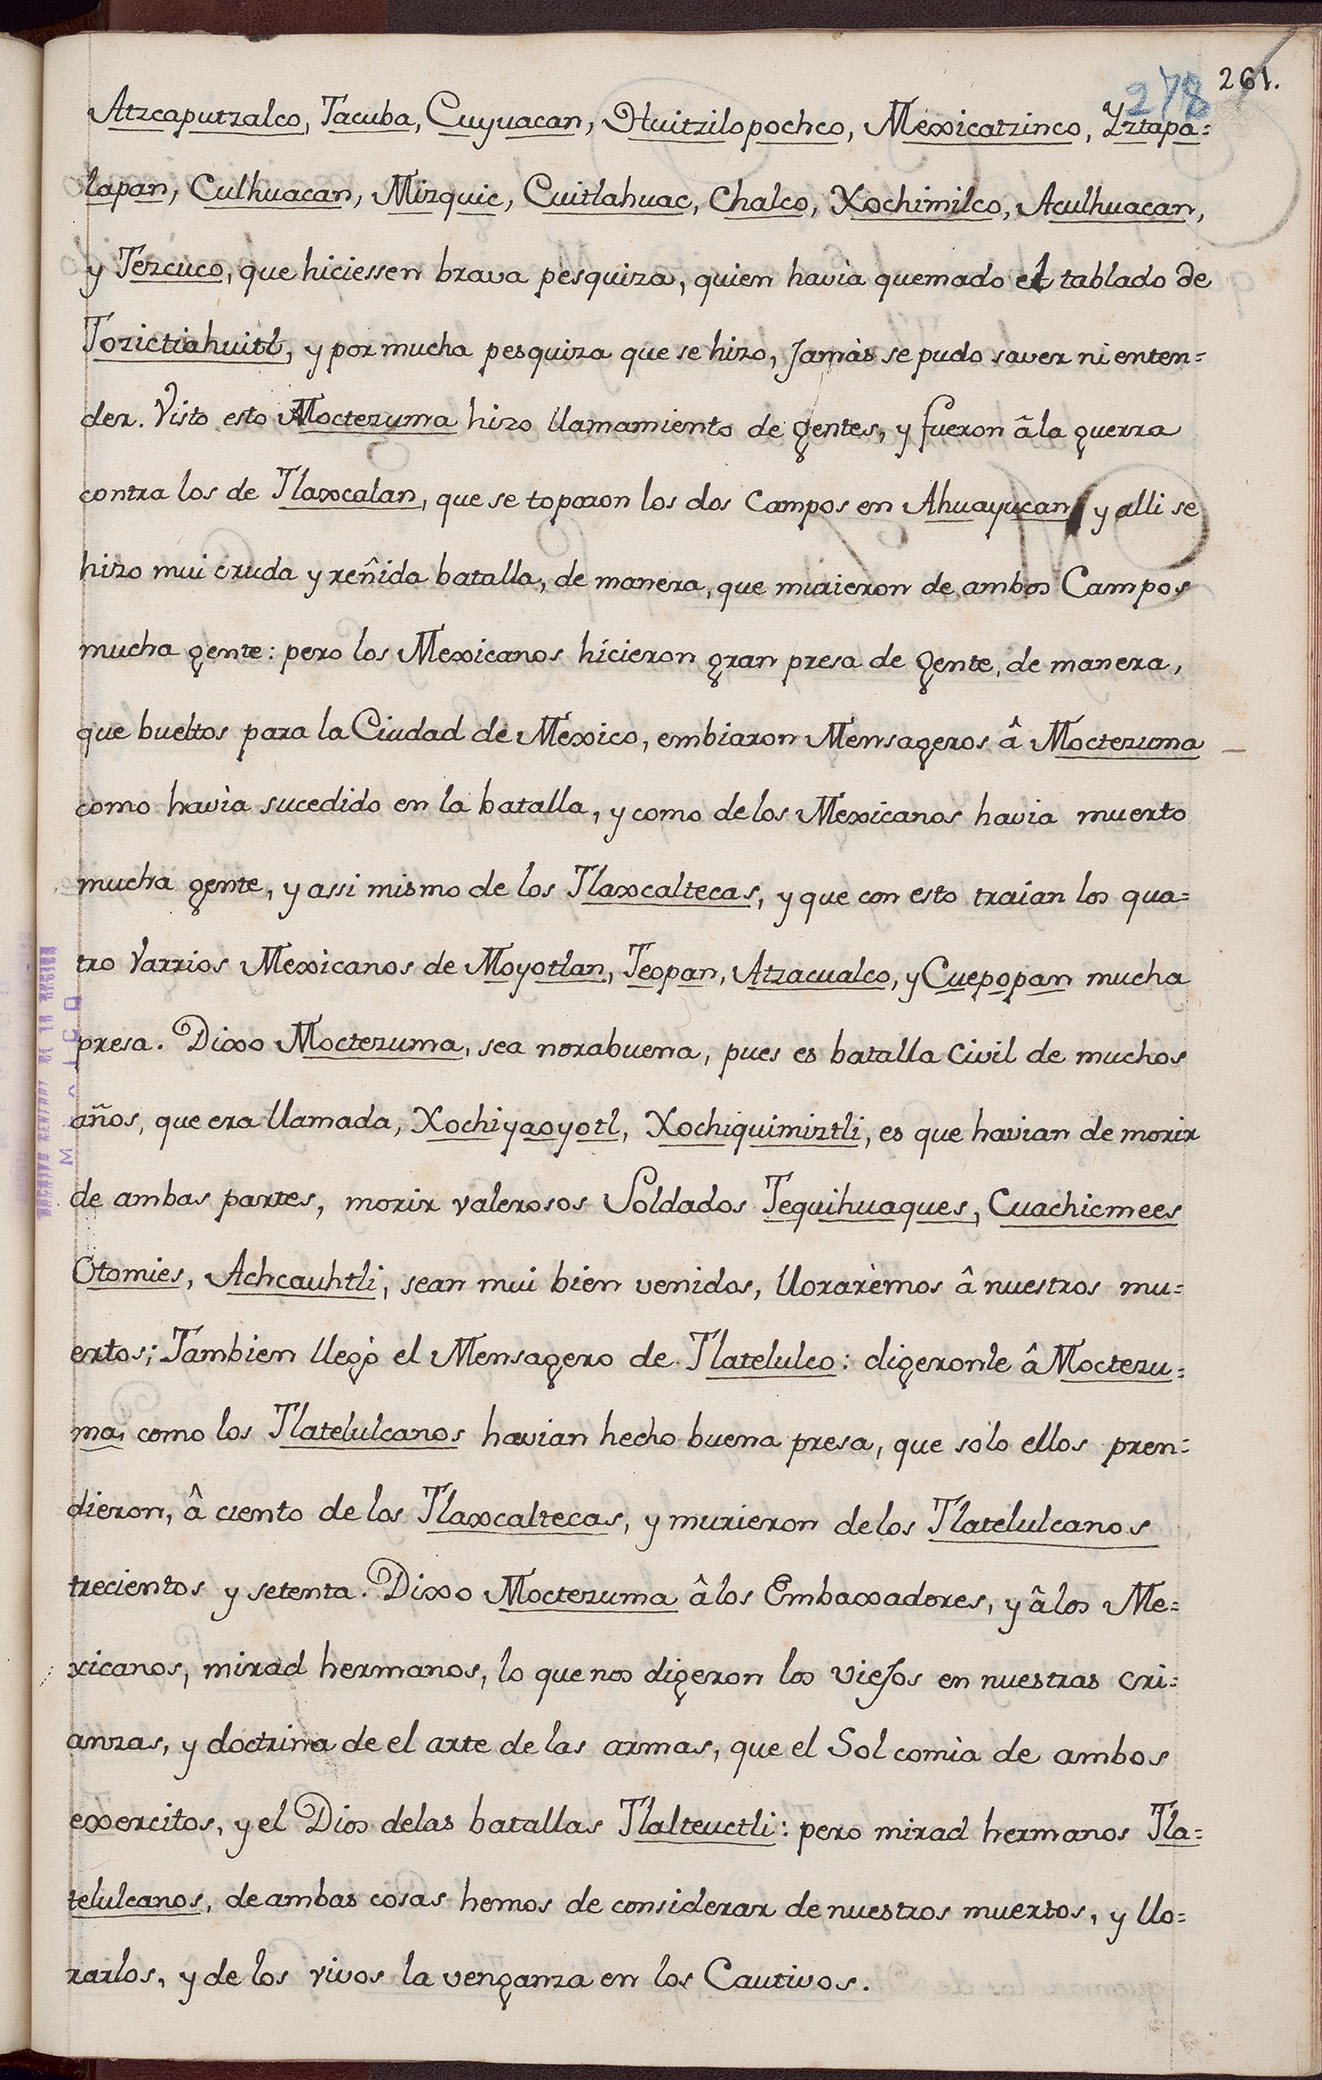 278 261.
Atzcaputzalco, Tacuba, Cuyuacan, Huitzilopochco, Mexicatzinco, Yztapa=
lapan, Culhuacan, Mizquic, Cuitlahuac, Chalco, Xochimilco, Aculhuacan,
y Tezcuco, que hiciessen brava pesquiza, quien havìa quemado el tablado de
Tozictiahuitl, y por mucha pesquiza que se hizo, Jamàs se pudo saver ni enten=
der. Visto esto Moctezuma hizo llamamiento de gentes, y fueron â la guerra
contra los de Tlaxcalan, que se toparon los dos Campos en Ahuayucan, y alli se
hizo mui cruda y reñida batalla, de manera, que murieron de ambos Campos
mucha gente: pero los Mexicanos hicieron gran presa de gente, de manera,
que bueltos para la Ciudad de Mexico, embiaron Mensageros â Moctezuma
como havìa sucedido en la batalla, y como de los Mexicanos havia muerto
mucha gente, y assi mismo de los Tlaxcaltecas, y que con esto traian los qua=
tro Varrios Mexicanos de Moyotlan, Teopan, Atzacualco, y Cuepopan mucha
presa. Dixo Moctezuma, sea norabuena, pues es batalla Civil de muchos
años, que era llamada, Xochiyaoyotl, Xochiquimiztli, es que havian de morir
de ambas partes, morir valerosos Soldados Tequihuaques, Cuachicmees
Otomies, Achcauhtli, sean mui bien venidos, llorarèmos â nuestros mu=
ertos; Tambien llegò el Mensagero de Tlatelulco: digeronle â Moctezu=
ma, como los Tlatelulcanos havian hecho buena presa, que solo ellos pren=
dieron, â ciento de los Tlaxcaltecas, y murieron de los Tlatelulcanos
trecientos y setenta. Dixo Moctezuma â los Embaxadores, y â los Me=
xicanos, mirad hermanos, lo que nos digeron los viejos en nuestras cri=
anzas, y doctrina de el arte de las armas, que el Sol comìa de ambos
exercitos, y el Dios delas batallas Tlalteuctli: pero mirad hermanos Tla=
telulcanos, de ambas cosas hemos de considerar de nuestros muertos, y llo=
rarlos, y de los vivos la venganza en los Cautivos.
ARCHIVO GENERAL DE LA NACION
MEXICO